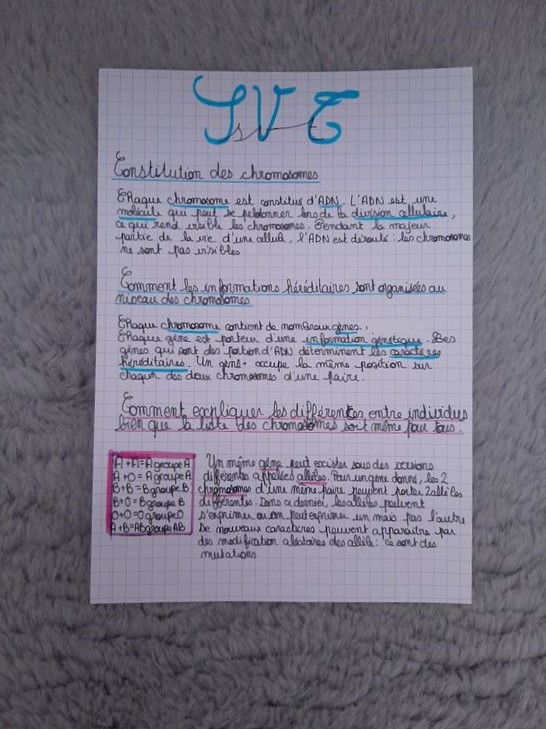 SVT
svt
Constitution des chromosomes
Chaque chromosome est constitué d'ADN. L'ADN est une
molécule qui peut se pelotonner lors de la division cellulaire,
ce qui rend visible les chromosomes. Pendant la majeur
partie de la vie d'une cellule, l'ADN est déroulé : les chromosomes
ne sont pas visibles
Comment les informations héréditaires sont organisées au
niveau des chromosomes
Chaque chromosome contient de nombreux gènes.
Chaque gène est porteur d'une information génétique. Des
gènes qui sont des portion d'ADN déterminent les caractères
héréditaires. Un gène occupe la même position sur
chaqun des deux chromosomes d'une paire.
Comment expliquer les différentes entre individus
bien que la liste des chromosomes soit même pour tous.
A+A=A groupe A
A+O=A groupe A
B+B=B groupe B
B+O=B groupe B
O+O=O groupe O
A+B=AB groupe AB
Un même gène peut exister sous des versions
différentes appelées allèles. Pour un gène donné, les 2
chromosomes d'une même paire peuvent porter 2 allèles
différentes. Dans ce dernier, les allèles peuvent
s'exprimer ou un peut exprimer un mais pas l'autre
De nouveaux caractères peuvent apparaître par
des modification aléatoires des allèle : ce sont des
mutations